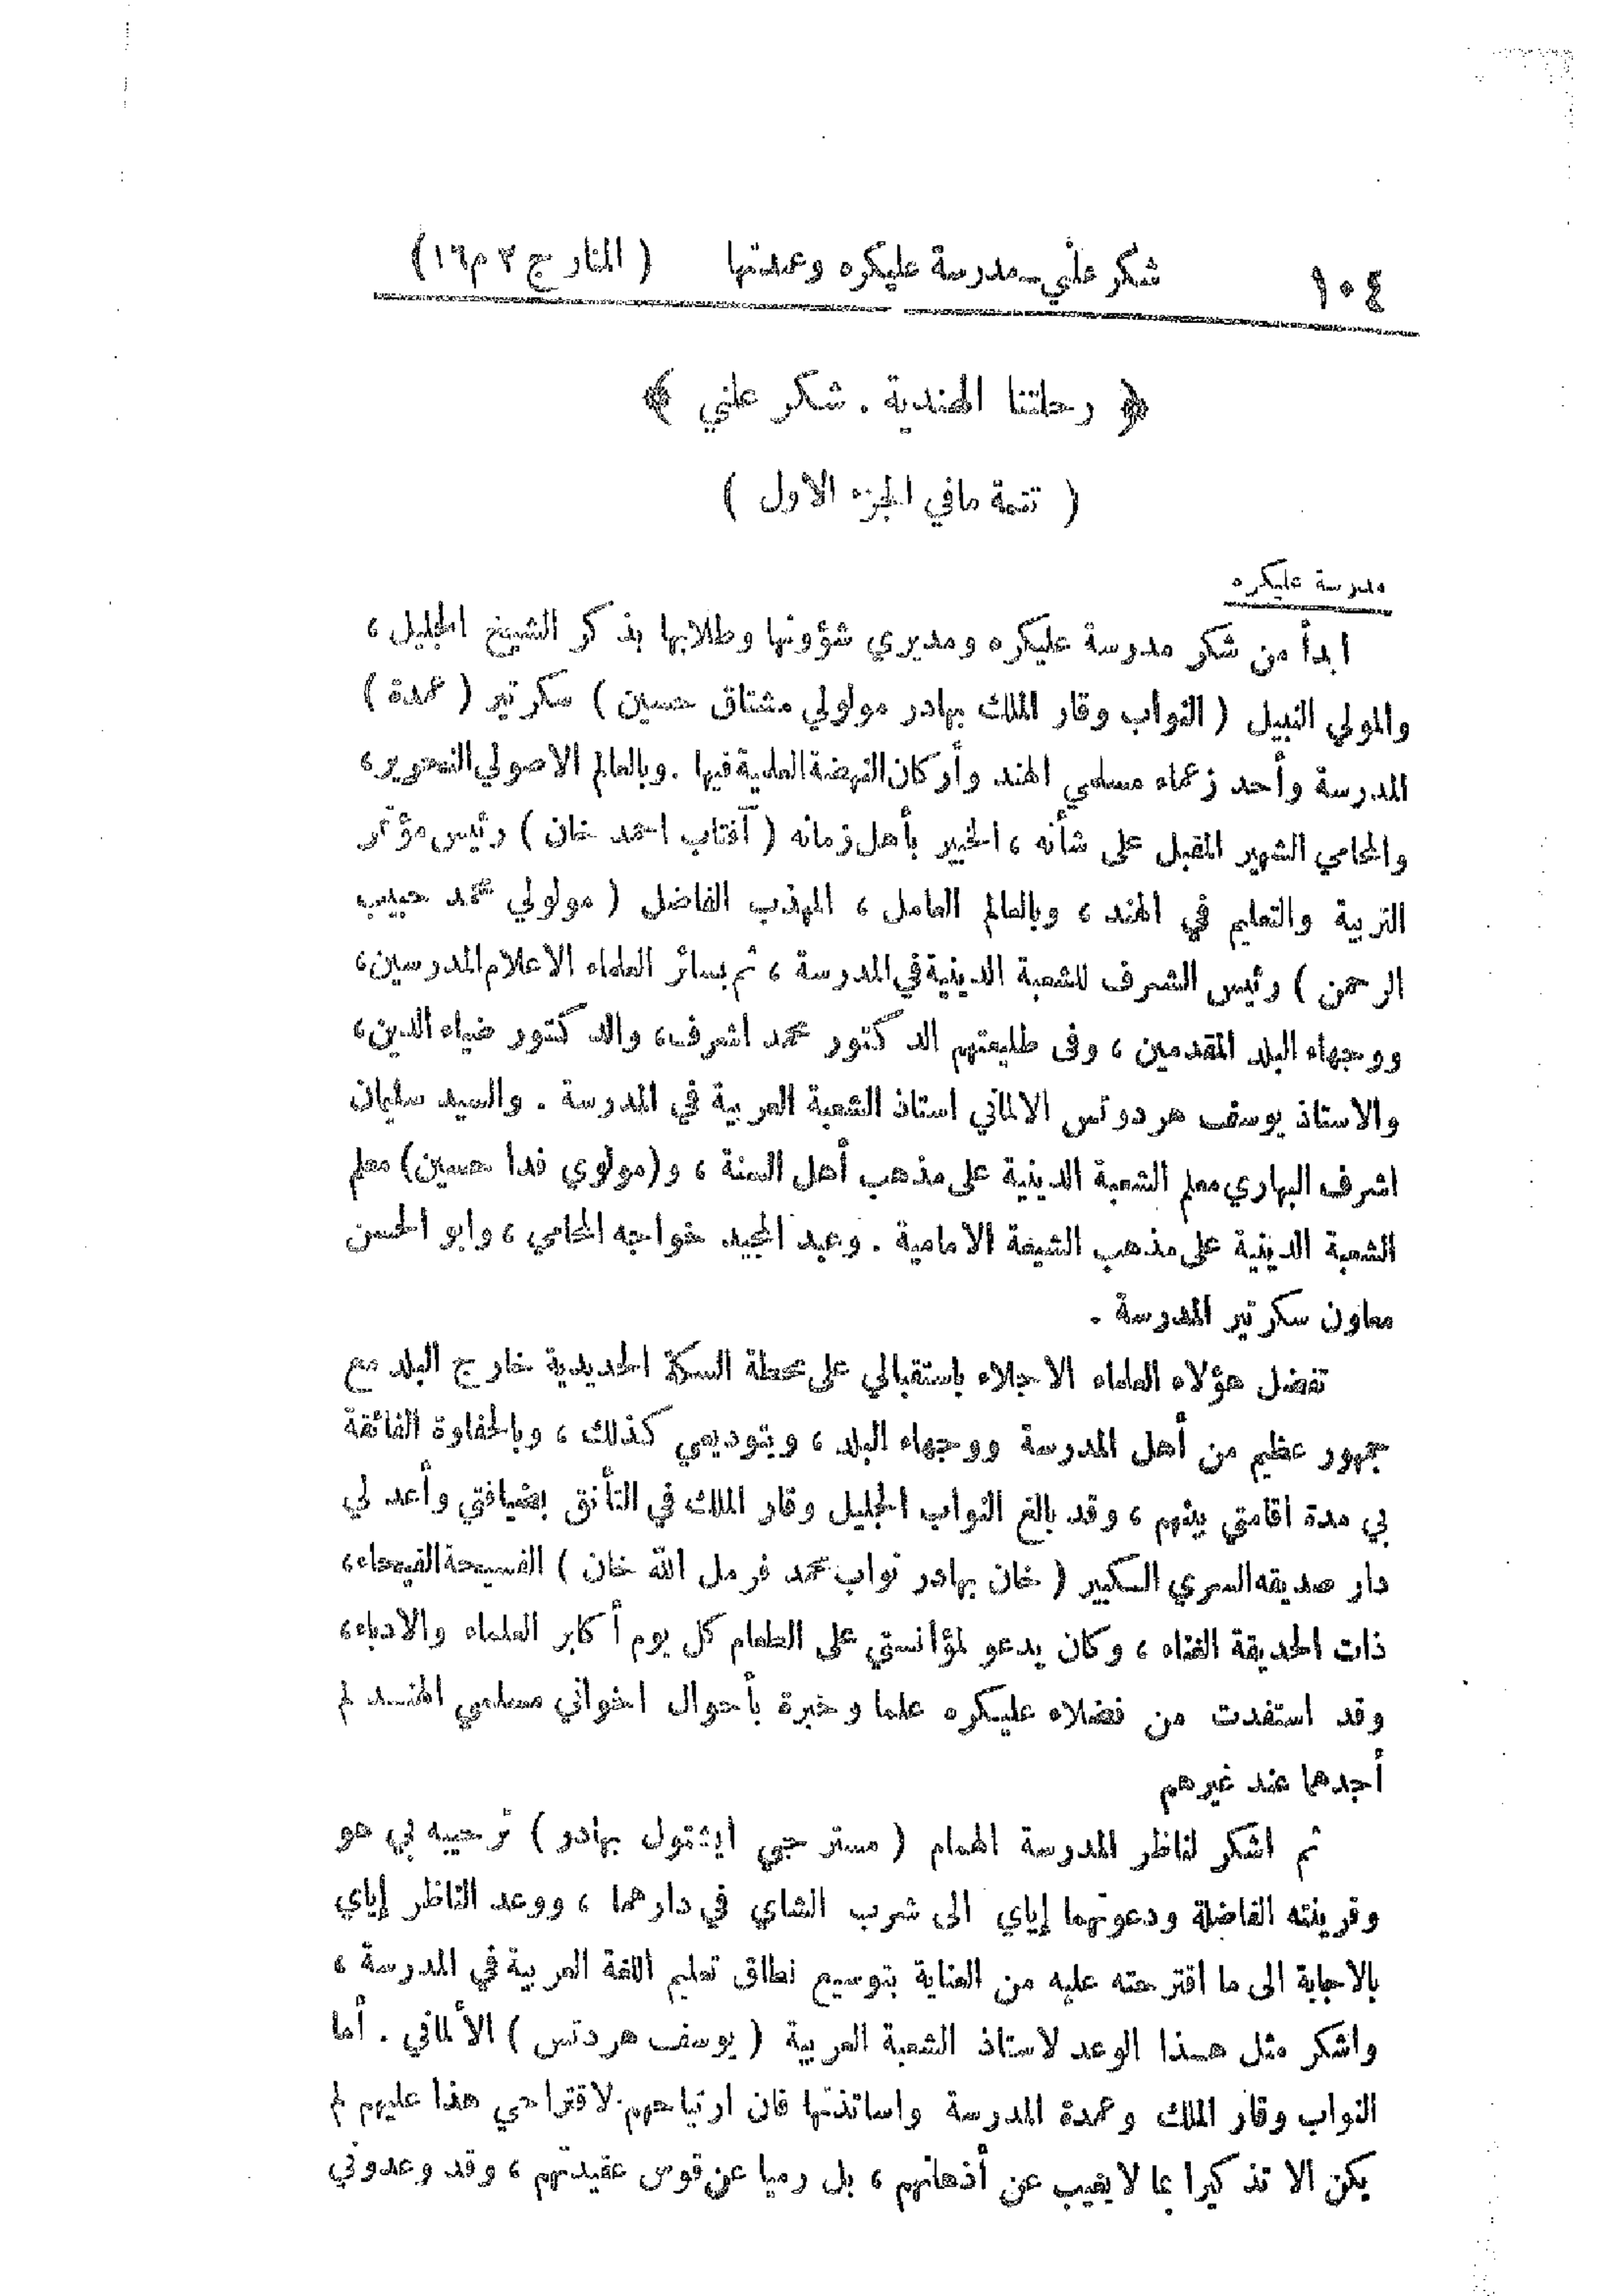 ١٠٤ شكر علني ـ مدرسة عليكره وعمدتها ( المنار ج ٢ م ١٦ )
﴿ رحلتنا الهندية . شكر علني ﴾
( تتمة مافي الجزء الاول )
مدرسة عليكره
ابدأ من شكر مدرسة عليكره ومديري شؤونها وطلابها بذكر الشيخ الجليل ،
والمولي النبيل ( النواب وقار الملك بهادر مولولي مشتاق حسين ) سكرتير ( عمدة )
المدرسة وأحد زعماء مسلمي الهند وأركان النهضة العلمية فيها . وبالعالم الاصولي النحرير ،
والمحامي الشهير المقبل على شأنه ، الخبير بأهل زمانه ( آفتاب احمد خان ) رئيس مؤتمر
التربية والتعليم في الهند ، وبالعالم العامل ، المهذب الفاضل ( مولولي محمد حبيب
الرحمن ) رئيس الشرف للشعبة الدينية في المدرسة ، ثم بسائر العلماء الاعلام المدرسين ،
ووجهاء البلد المقدمين ، وفى طليعتهم الدكتور محمد اشرف ، والدكتور ضياء الدين ،
والاستاذ يوسف هردوتس الالماني استاذ الشعبة العربية في المدرسة . والسيد سليمان
اشرف البهاري معلم الشعبة الدينية على مذهب أهل السنة ، و(مولوي فدا حسين) معلم
الشعبة الدينية على مذهب الشيعة الامامية . وعبد المجيد خواجه المحامي ، وابو الحسن
معاون سكرتير المدرسة .
تفضل هؤلاء العلماء الاجلاء باستقبالي على محطة السكة الحديدية خارج البلد مع
جمهور عظيم من أهل المدرسة ووجهاء البلد ، وبتوديعي كذلك ، وبالحفاوة الفائقة
بي مدة اقامتي بينهم ، وقد بالغ النواب الجليل وقار الملك في التأنق بضيافتي وأعد لي
دار صديقه السري الكبير ( خان بهادر نواب محمد فرمل الله خان ) الفسيحة الفيحاء ،
ذات الحديقة الغناء ، وكان يدعو لمؤانستي على الطعام كل يوم أكابر العلماء والادباء ،
وقد استفدت من فضلاء عليكره علما وخبرة بأحوال اخواني مسلمي الهند لم
أجدها عند غيرهم
ثم اشكر لناظر المدرسة الهمام ( مستر جي ايشتول بهادر ) ترحيبه بي هو
وقرينته الفاضلة ودعوتهما إياي الى شرب الشاي في دارهما ، ووعد الناظر إياي
بالاجابة الى ما اقترحته عليه من العناية بتوسيع نطاق تعليم اللغة العربية في المدرسة ،
واشكر مثل هذا الوعد لاستاذ الشعبة العربية ( يوسف هردتس ) الألماني . أما
النواب وقار الملك وعمدة المدرسة واساتذتها فان ارتياحهم لاقتراحي هذا عليهم لم
يكن الا تذكيرا بما لا يغيب عن أذهانهم ، بل رميا عن قوس عقيدتهم ، وقد وعدوني